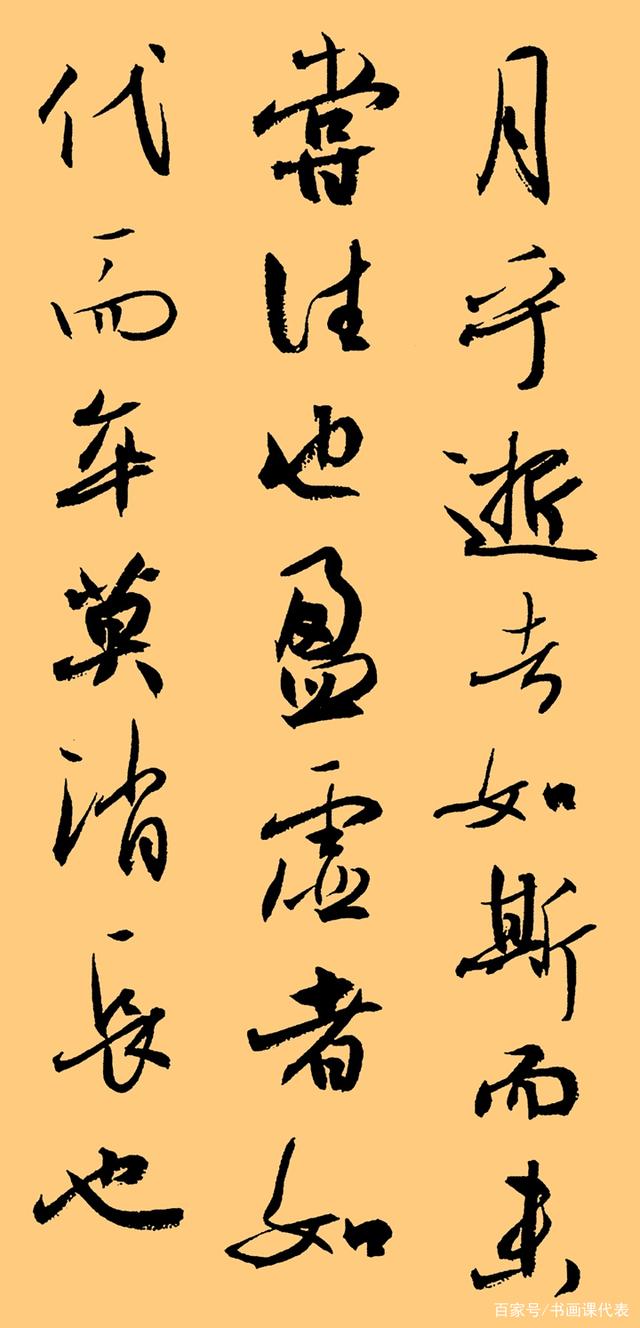 月乎逝去如斯而未
嘗往也盈虛者如
代而卒莫消長也
百家号/书画课代表